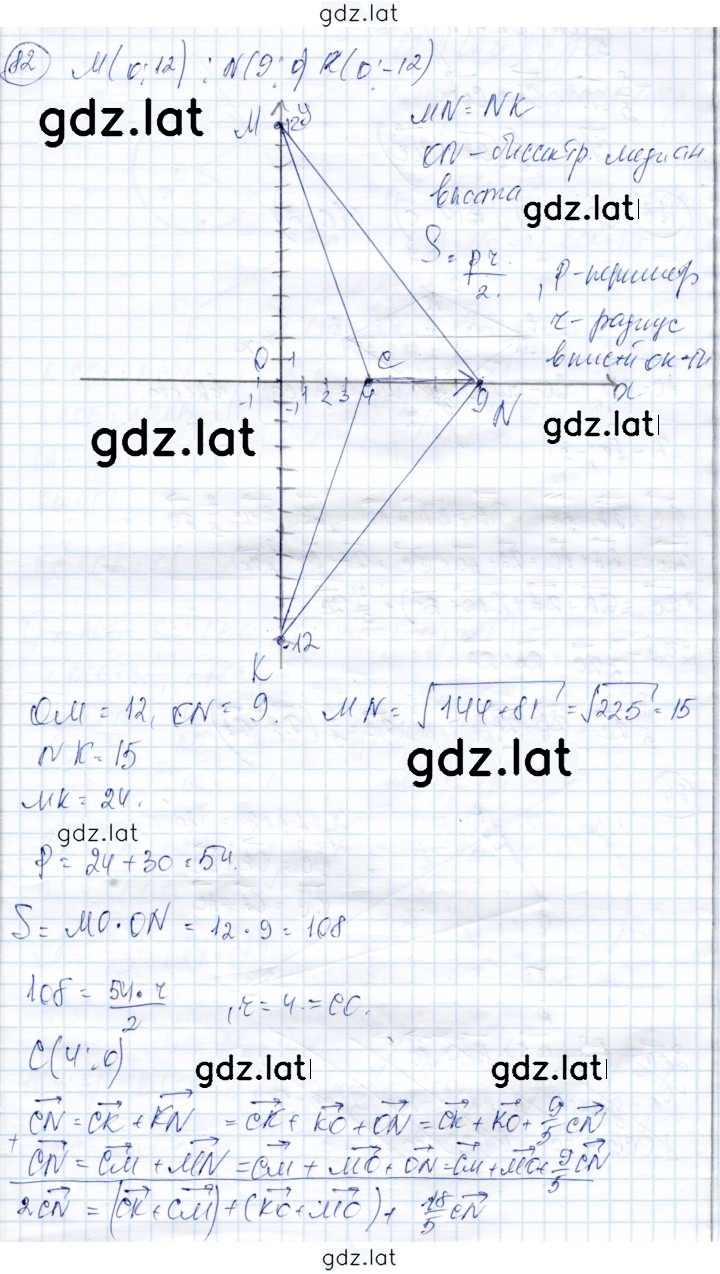 gdz.lat
82 M(0;12); N(9;0) K(0;-12)
gdz.lat
M 12 y
MN = NK
ON - биссектр. медиан
высота
gdz.lat
S = pr/2, p - периметр
r - радиус
впист-й ок-ти
0 1 C
-1 -1 1 2 3 4 9 N x
gdz.lat
gdz.lat
-12
K
OM = 12, ON = 9. MN = √144+81 = √225 = 15
NK = 15
gdz.lat
MK = 24.
gdz.lat
P = 24 + 30 = 54.
S = MO · ON = 12 · 9 = 108
108 = 54·r/2, r = 4. = CO.
C(4;0)
gdz.lat
gdz.lat
CN = CK + KN = CK + KO + ON = CK + KO + 9/5 CN
+ CN = CM + MN = CM + MO + ON = CM + MO + 9/5 CN
2CN = (CK + CM) + (KO + MO) + 18/5 CN
gdz.lat